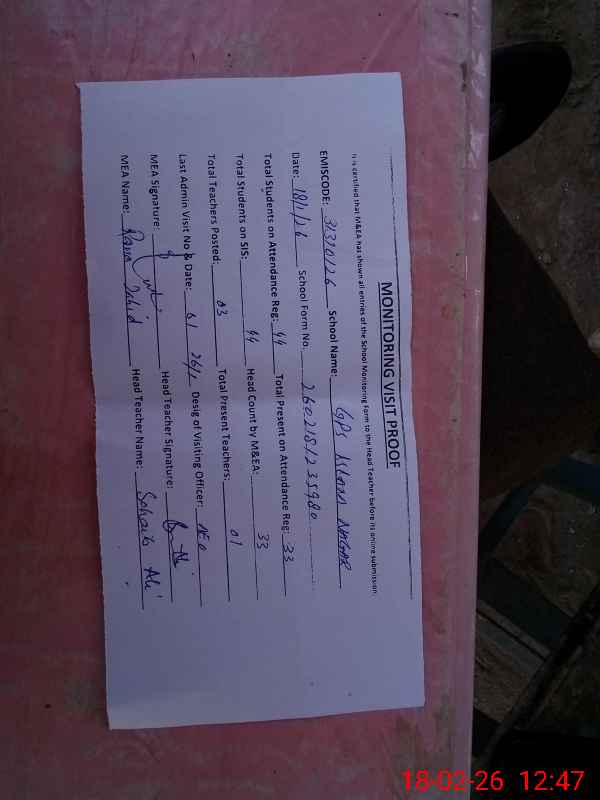 MONITORING VISIT PROOF
It is certified that M&EA has shown all entries of the School Monitoring Form to the Head Teacher before its online submission.
EMISCODE: 31310126 School Name: GPS ISLAM NAGAR
Date: 18/1/26 School Form No. 2602181235980
Total Students on Attendance Reg: 44 Total Present on Attendance Reg: 33
Total Students on SIS: 44 Head Count by M&EA: 33
Total Teachers Posted: 03 Total Present Teachers: 01
Last Admin Visit No & Date: Desig of Visiting Officer: AEO
MEA Signature: Head Teacher Signature:
MEA Name: Rana Zahid Head Teacher Name: Sohaib Ali
18-02-26 12:47